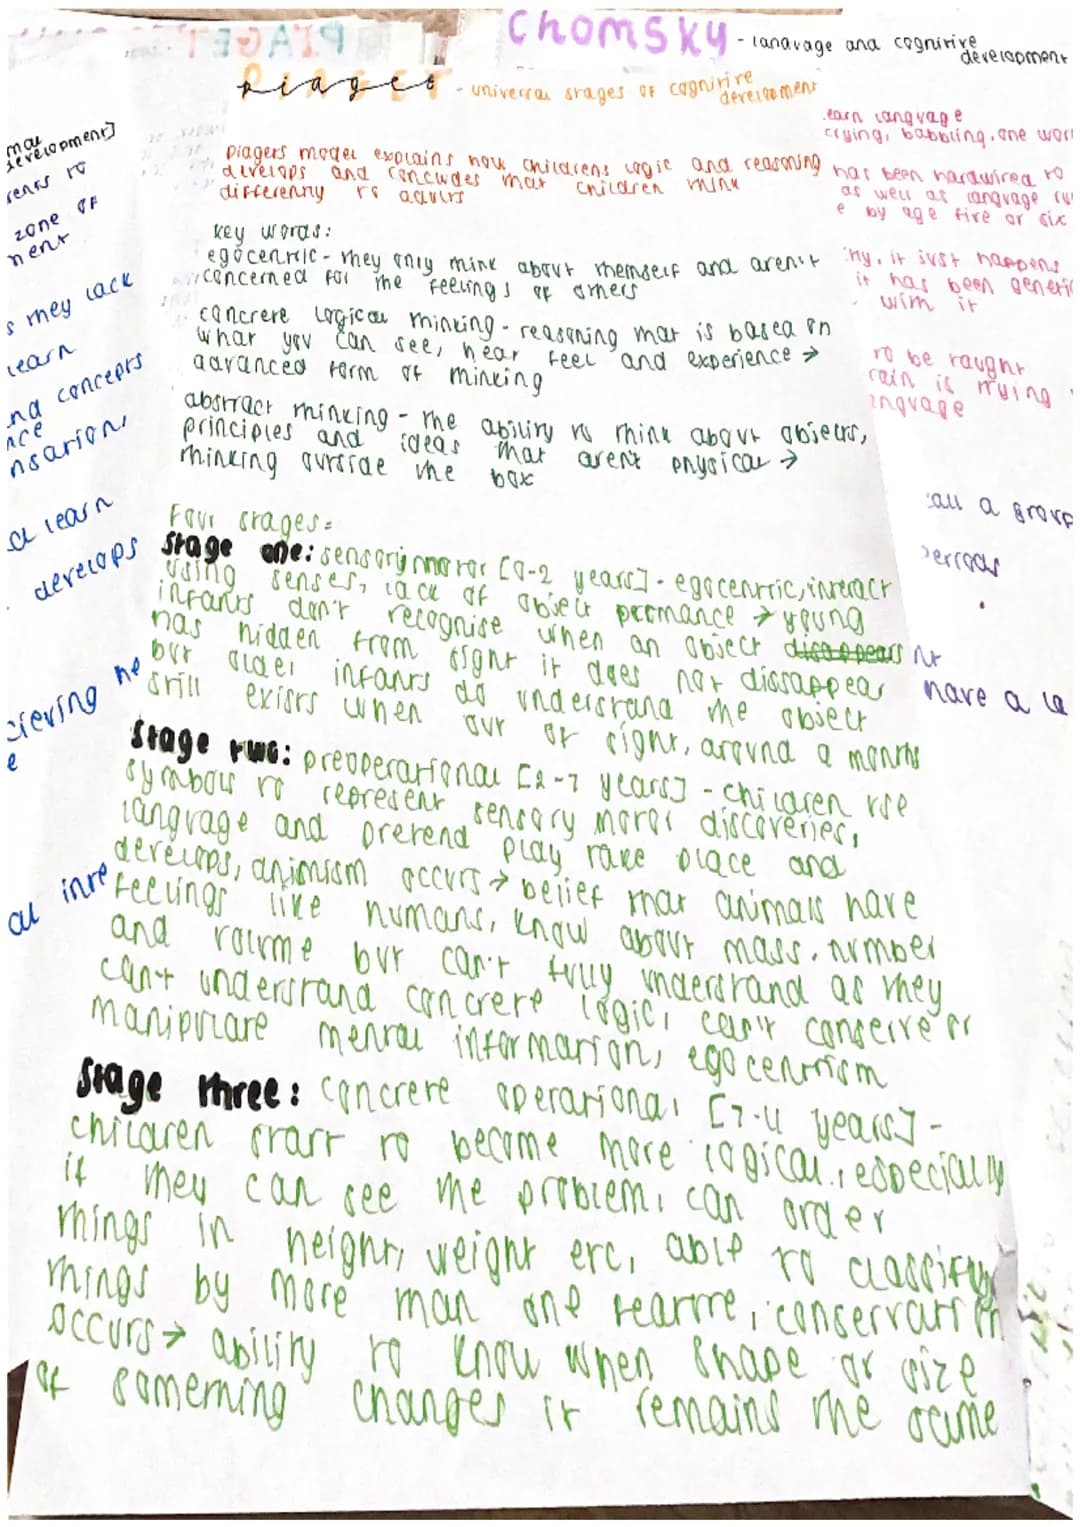 Chomsky - language and cognitive development
PIAGET
Piaget - universal stages of cognitive development
Piagets model explains how childrens logic and reasoning
develops and concludes that children think
differently to adults
key words:
egocentric - they only think about themself and aren't
concerned for the feelings of others
concrete logical thinking - reasoning that is based on
what you can see, hear feel and experience →
advanced form of thinking
abstract thinking - the ability to think about objects,
principles and ideas that arent physical →
thinking outside the box
Four stages:
Stage one: sensorymotor [0-2 years] - egocentric, interact
using senses, lack of object permance → young
infants don't recognise when an object disappears
has hidden from sight it does not dissappear
but older infants do understand the object
still exists when out of sight, around 8 months
Stage two: preoperational [2-7 years] - children use
symbols to represent sensory motor discoveries,
language and pretend play take place and
develops, animism occurs → belief that animals have
feelings like humans, know about mass, number
and volume but can't fully understand as they
can't understand concrete logic, can't conserve or
manipulate mental information, egocentrism
Stage three: concrete operational [7-11 years] -
children start to become more logical, especially
if they can see the problem, can order
things in height, weight etc, able to classify
things by more than one feature, conservation
occurs → ability to know when shape or size
of something changes it remains the same
development]
zone of
s they lack
learn
and concepts
learn
develops
he
earn language
crying, babbling, one wor
has been hardwired to
as well as language ru
e by age five or six
hy, it just happens
it has been geneti
with it
to be taught
rain is trying
anguage
call a group
periods
have a la